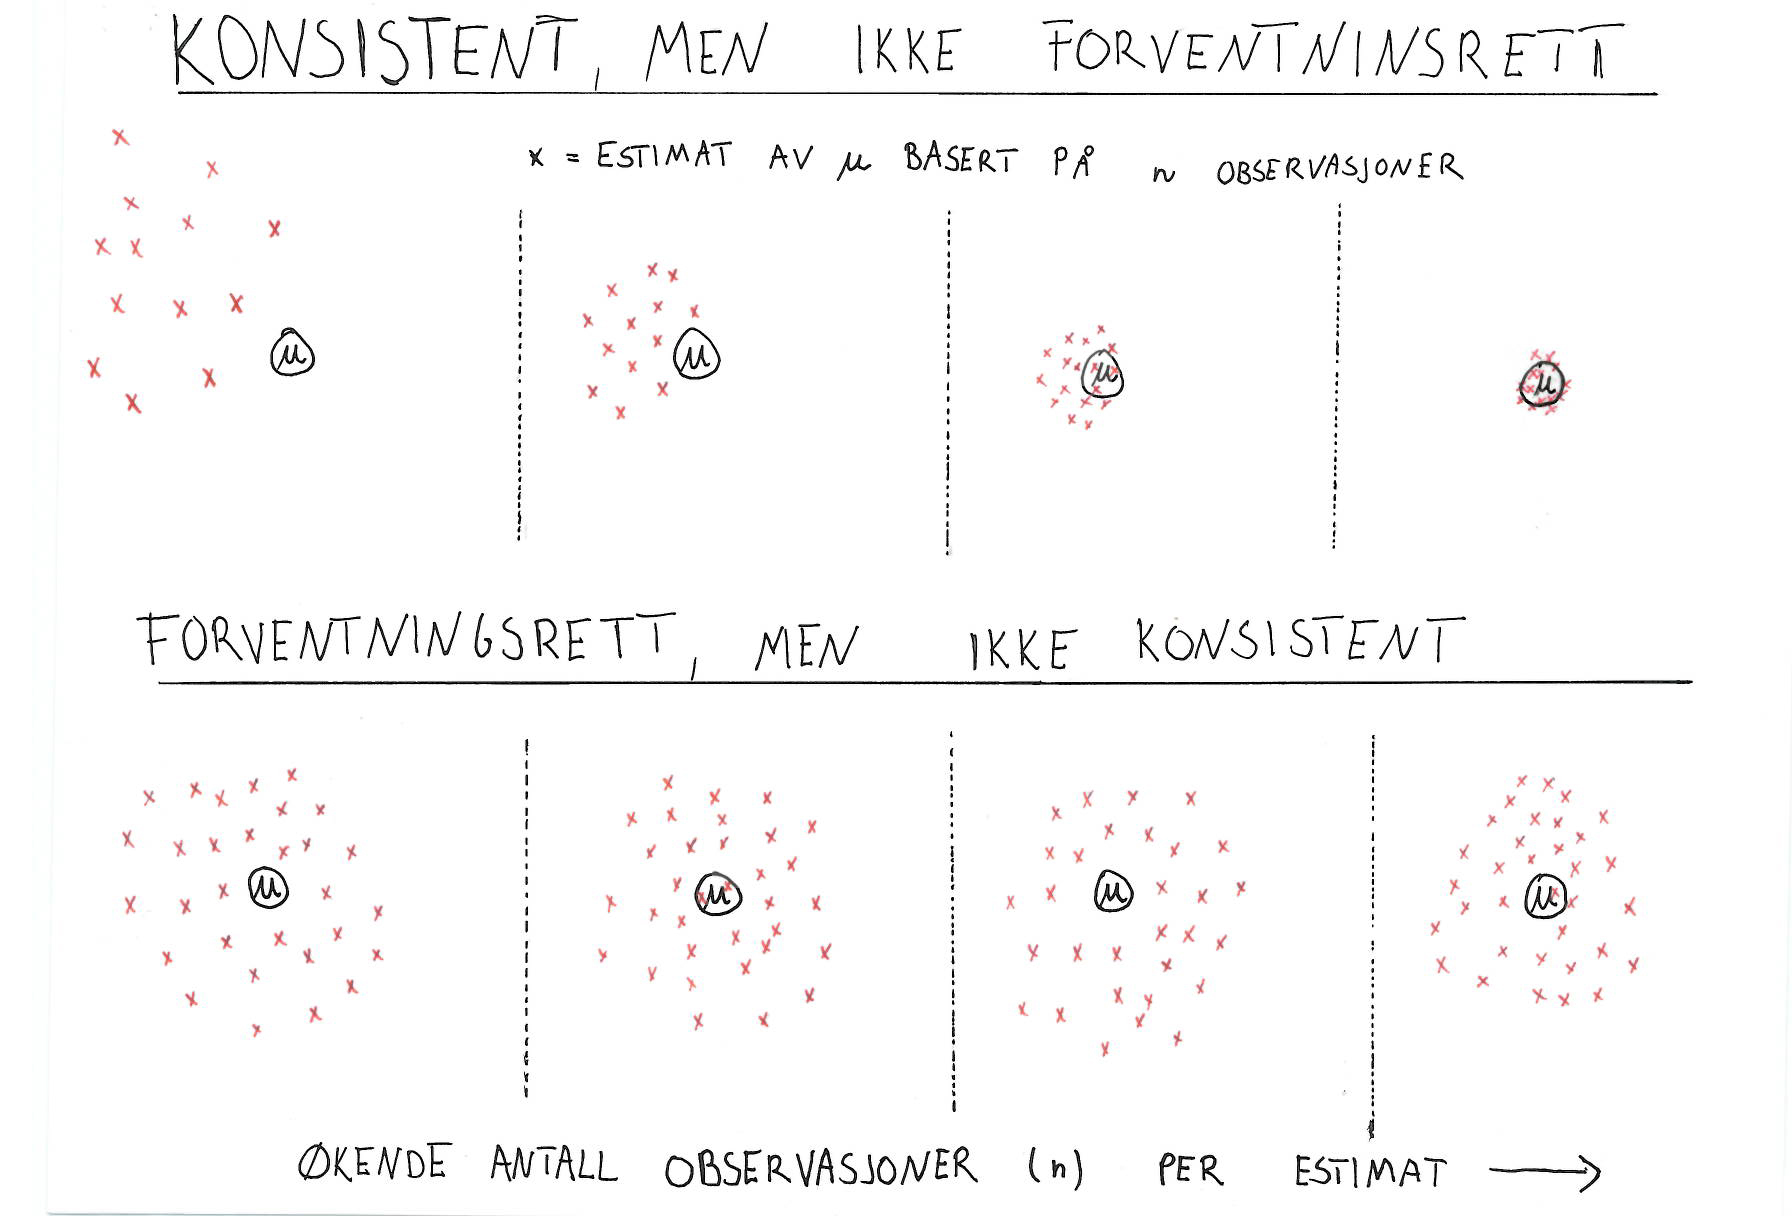 KONSISTENT, MEN IKKE FORVENTNINSRETT
x = ESTIMAT AV μ BASERT PÅ n OBSERVASJONER
μ μ μ μ
FORVENTNINGSRETT, MEN IKKE KONSISTENT
μ μ μ μ
ØKENDE ANTALL OBSERVASJONER (n) PER ESTIMAT →